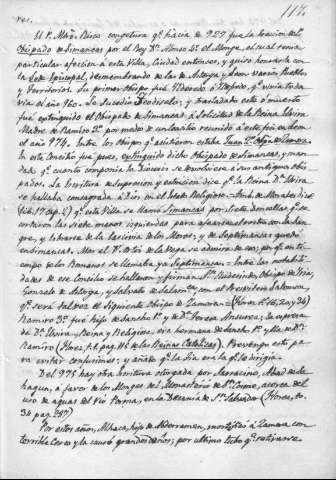 117.
El P. Mtro. Risco congetura qe. hácia de 927 fue la creacion del
Obispado de Simancas por el Rey Dn. Alonso 4º el Monge, el cual tenia
particular afeccion á esta Villa, Ciudad entonces, y quiso honrarla con
la Sede Episcopal, desmembrando de las de Astorga y Leon varios Pueblos
y Territorios. Su primer Obispo fue Nidardo ó
via el año 960. Le sucedió Teodisclo; y trasladado este ó muerto
fue extinguido el Obispado de Simancas á solicitud de la Reina Elvira
Madre de Ramiro 3º por medio de un Concilio reunido á este fin en Leon
el año 974. Entre los Obispos qe. asistieron estaba Juan 1º Obpo. de Zamora.
En este Concilio fue pues, extinguido dicho Obispado de Simancas, y man-
dado qe. cuanto componia la Diócesis se devolviese á sus antiguos obis-
pados. La Escritura de supresion y extincion dice qe. la Reina Da. Elvira
se hallaba consagrada á Dios en el Estado Religioso. = Amb. de Morales dice
(lib. 17 cap. 2) qe. esta Villa se llamó Simancas por siete doncellas qe. se
cortaron las siete manos izquierdas para afearse el rostro con la San-
gre, y librarse de la lascivia de los Moros; y de Septimancas quedó
en Simancas. Mas el P. Mtro. de la Vega se admira de eso; por qe. en ti-
empo de los Romanos se llamaba ya Septimancas. = Entre las notabili-
dades de ese Concilio se hallaron y firman Sn. Rudesindo, Obispo de Iria,
Gonzalo de Astorga, y Salvato de Salamca. con el Presbitero Salomon,
qe. será tal vez el siguiente Obispo de Zamora =
Ramiro 3º fue hijo de Sancho 1º y de Da. Teresa Ansurez; la supues-
ta Da. Elvira, Reina y Religiosa era hermana de Sancho 1º y tia de Dn.
Ramiro (Florez, t. 1. pag. 116 de las Reinas Catolicas). Prevengo esto pa-
ra evitar confusiones; y añado qe. la tia era la qe. lo dirigia.
Del 975 hay otra Escritura otorgada por Sarracino, Abad de Sa-
hagun, á favor de los Monges del Monasterio de Sn. Cosme, acerca del
uso de aguas del rio Porma, en la Decania de Sn. Salvador (Florez, to.
36 pag 287)
Por estos años, Alhaca, hijo de Abderramen, mortificó á Zamora con
terrible Cerco y la causó grandes daños; por ultimo tubo qe. retirarse.